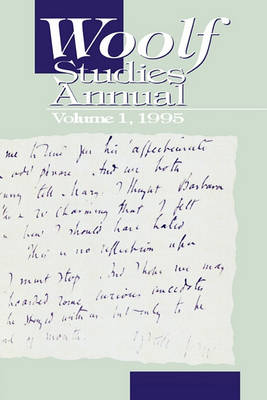 Woolf
Studies
Annual
Volume 1, 1995
me to for his affectionate
And we both
tell Mary I thought Barbara
so charming that I felt
how I should have hated
this is no reflection upon
I must stop. And I hope we may
hoarded some curious anecdotes
he stayed with us but only to be
of month.